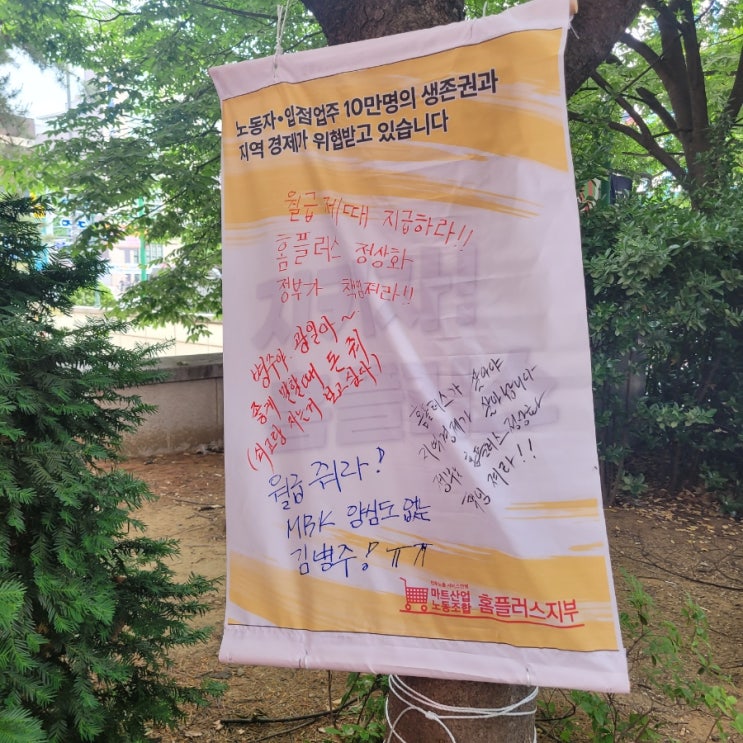 노동자•입점업주 10만명의 생존권과
지역 경제가 위협받고 있습니다
월급 제때 지급하라!!
홈플러스 정상화
정부가 책임져라!!
병주야 광일아~
좋게 말할때 돈 줘
(쇠고랑 차는거 한순간이다)
홈플러스가 살아야
지역경제가 살아납니다
정부는 홈플러스 정상화
책임 져라!!
월급 줘라!
MBK 양심도 없는
김병주! ㅠㅠ
마트산업
노동조합 홈플러스지부